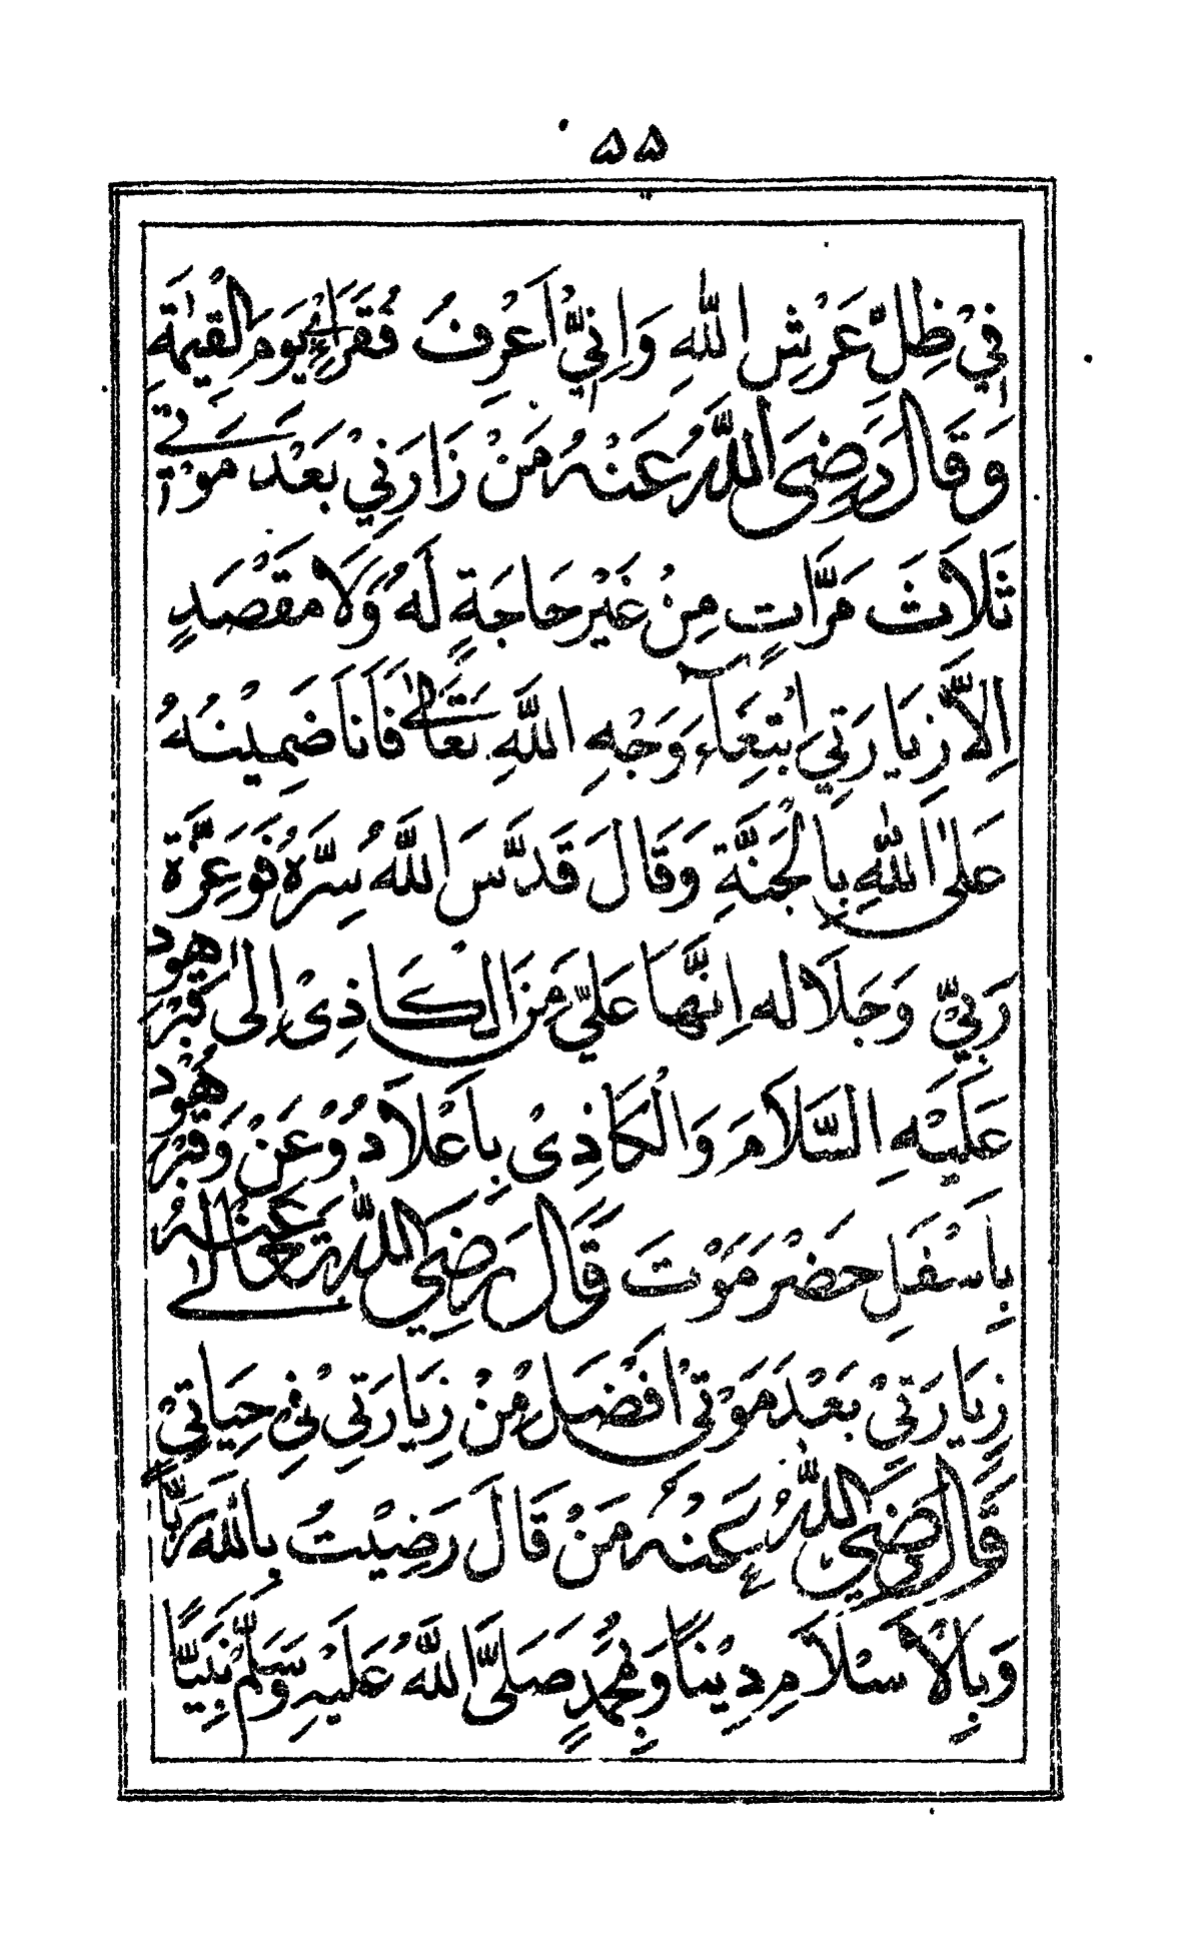 ۵۵
فِيْ ظِلِّ عَرْشِ اللّٰهِ وَاِنِّيْ اَعْرِفُ فُقَرَائِيْ يَوْمَ الْقِيٰمَةِ
وَقَالَ رَضِيَ اللّٰهُ عَنْهُ مَنْ زَارَنِيْ بَعْدَ مَوْتِيْ
ثَلَاثَ مَرَّاتٍ مِنْ غَيْرِ حَاجَةٍ لَهُ وَلَا مَقْصَدٍ
اِلَّا زِيَارَتِيَ ابْتِغَآءَ وَجْهِ اللّٰهِ تَعَالٰى فَاَنَا ضَمِيْنُهُ
عَلَى اللّٰهِ بِالْجَنَّةِ وَقَالَ قَدَّسَ اللّٰهُ سِرَّهُ فَوَعِزَّةِ
رَبِّيْ وَجَلَالِهِ اِنَّهَا عَلَيَّ مِنَ الْكَاذِىْ اِلٰى قَبْرِ هُوْد
عَلَيْهِ السَّلَامَ وَالْكَاذِىْ بِاَعْلَا دُوْعَنْ وَقَبْرُ هُوْد
بِاَسْفَلِ حَضْرَمَوْتَ قَالَ رَضِيَ اللّٰهُ تَعَالٰى عَنْهُ
زِيَارَتِيْ بَعْدَ مَوْتِيْ اَفْضَلُ مِنْ زِيَارَتِيْ فِيْ حِيَاتِيْ
قَالَ رَضِيَ اللّٰهُ عَنْهُ مَنْ قَالَ رَضِيْتُ بِاللّٰهِ رَبًّا
وَبِالْاِسْلَامِ دِيْنًا وَبِمُحَمَّدٍ صَلَّى اللّٰهُ عَلَيْهِ وَسَلَّمَ نَبِيًّا